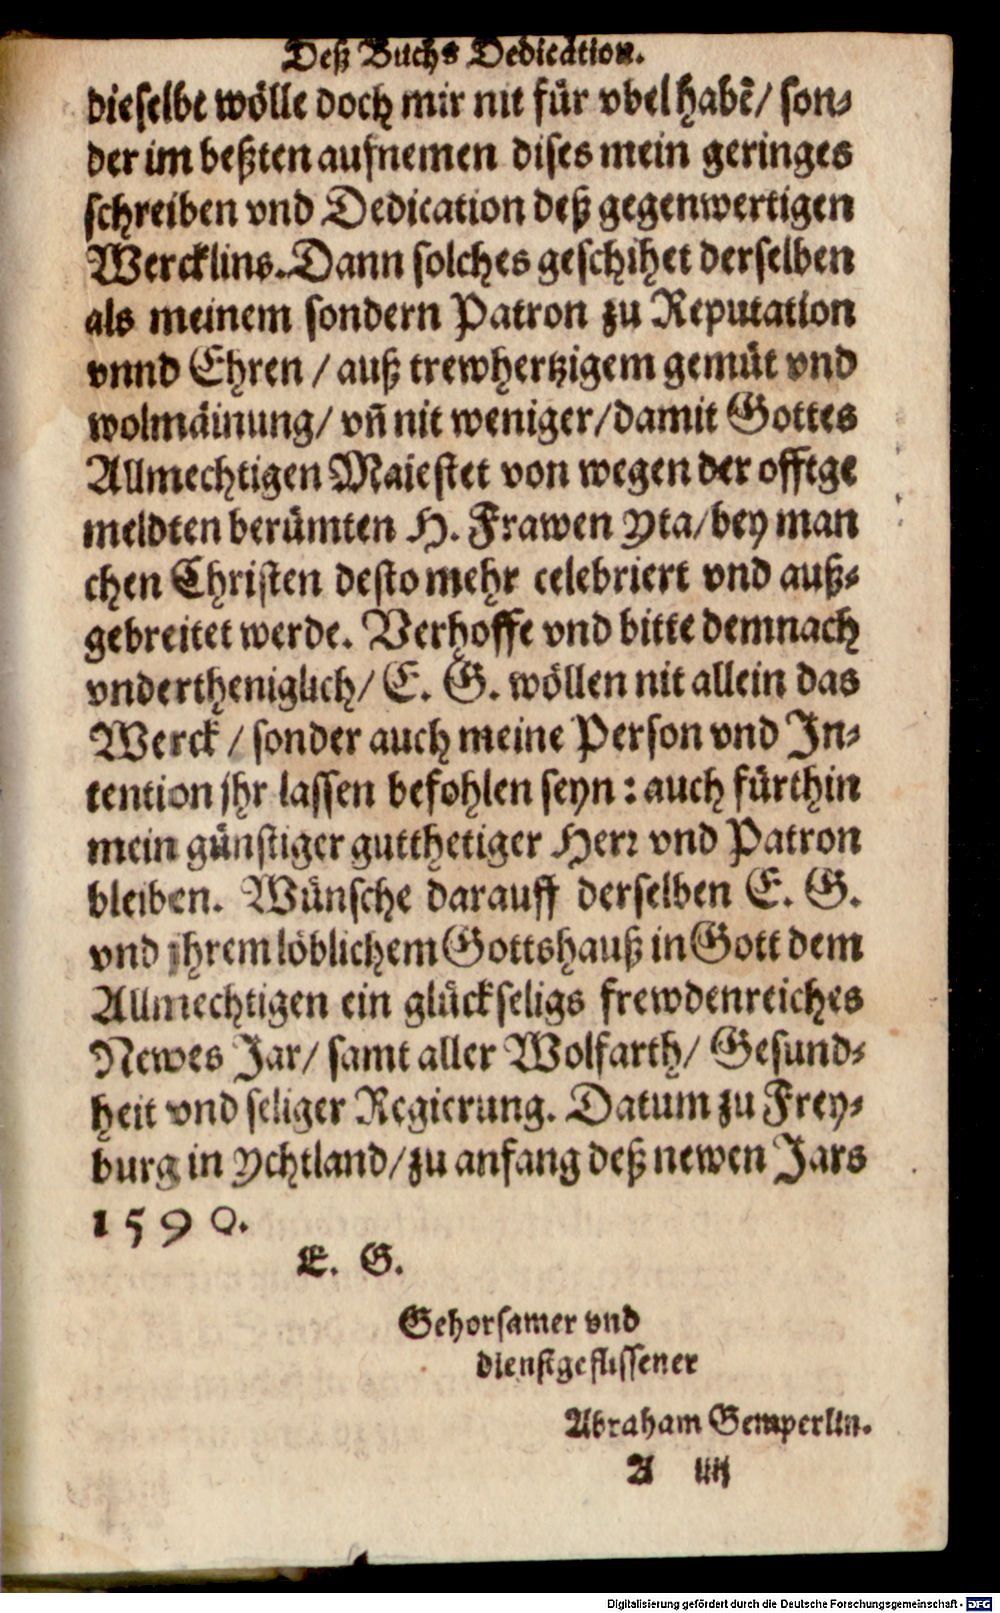 Deß Buchs Dedication.
dieselbe wölle doch mir nit für vbel habẽ/ son⸗
der im beßten aufnemen dises mein geringes
schreiben vnd Dedication deß gegenwertigen
Wercklins. Dann solches geschihet derselben
als meinem sondern Patron zu Reputation
vnnd Ehren / auß trewhertzigem gemüt vnd
wolmäinung/ vñ nit weniger/ damit Gottes
Allmechtigen Maiestet von wegen der offtge
meldten berümten H. Frawen Yta/ bey man
chen Christen desto mehr celebriert vnd auß⸗
gebreitet werde. Verhoffe vnd bitte demnach
vndertheniglich/ E. G. wöllen nit allein das
Werck / sonder auch meine Person vnd In⸗
tention jhr lassen befohlen seyn : auch fürthin
mein günstiger gutthetiger Herr vnd Patron
bleiben. Wünsche darauff derselben E. G.
vnd jhrem löblichem Gottshauß in Gott dem
Allmechtigen ein glückseligs frewdenreiches
Newes Jar/ samt aller Wolfarth/ Gesund⸗
heit vnd seliger Regierung. Datum zu Frey⸗
burg in Ychtland/ zu anfang deß newen Jars
1590.
E. G.
Gehorsamer vnd
dienstgeflissener
Abraham Gemperlin.
A iiij
Digitalisierung gefördert durch die Deutsche Forschungsgemeinschaft - DFG